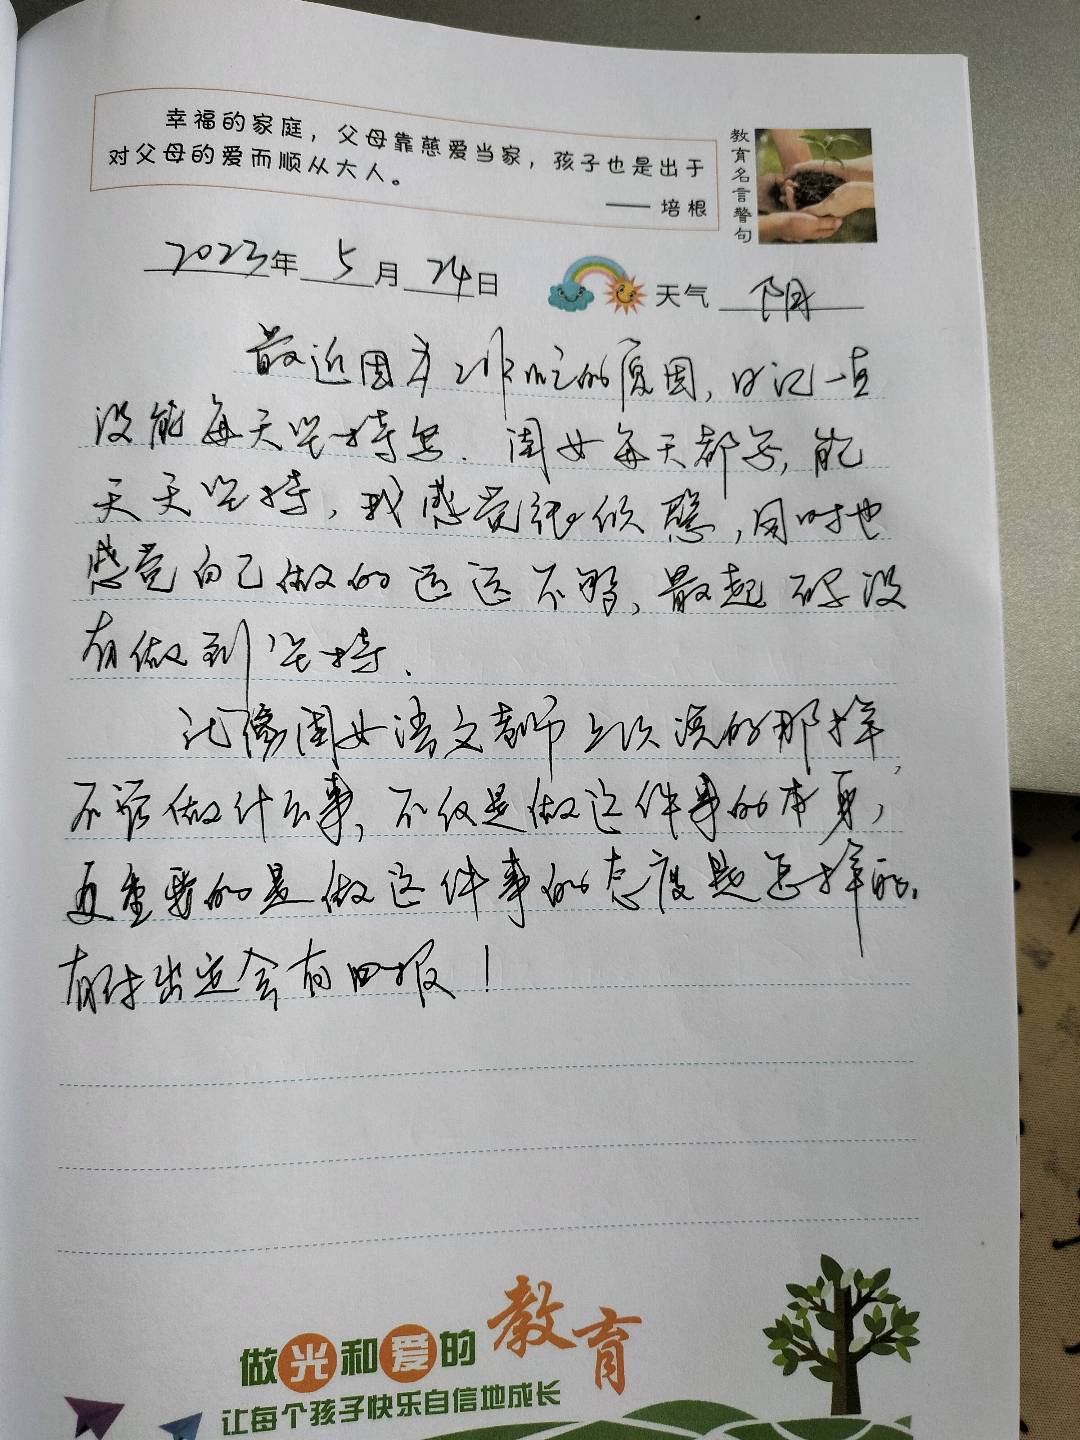 幸福的家庭，父母靠慈爱当家，孩子也是出于
对父母的爱而顺从大人。
—— 培根
教育名言警句
2023年 5月 24日 天气 阴
最近因为工作忙的原因，日记一直
没能每天坚持写．闺女每天都写，能
天天坚持，我感觉很欣慰，同时也
感觉自己做的远远不够，最起码没
有做到坚持．
就像闺女语文老师上次读的那样，
不论做什么事，不仅是做这件事的本身，
更重要的是做这件事的态度是怎样的．
有付出定会有回报！
做光和爱的教育
让每个孩子快乐自信地成长